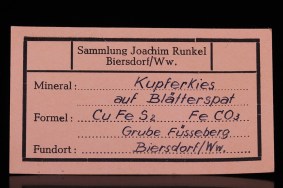 Sammlung Joachim Runkel
Biersdorf/Ww.
Mineral: Kupferkies
auf Blätterspat
Formel: CuFeS₂ FeCO₃
Grube Füsseberg
Fundort: Biersdorf/Ww.